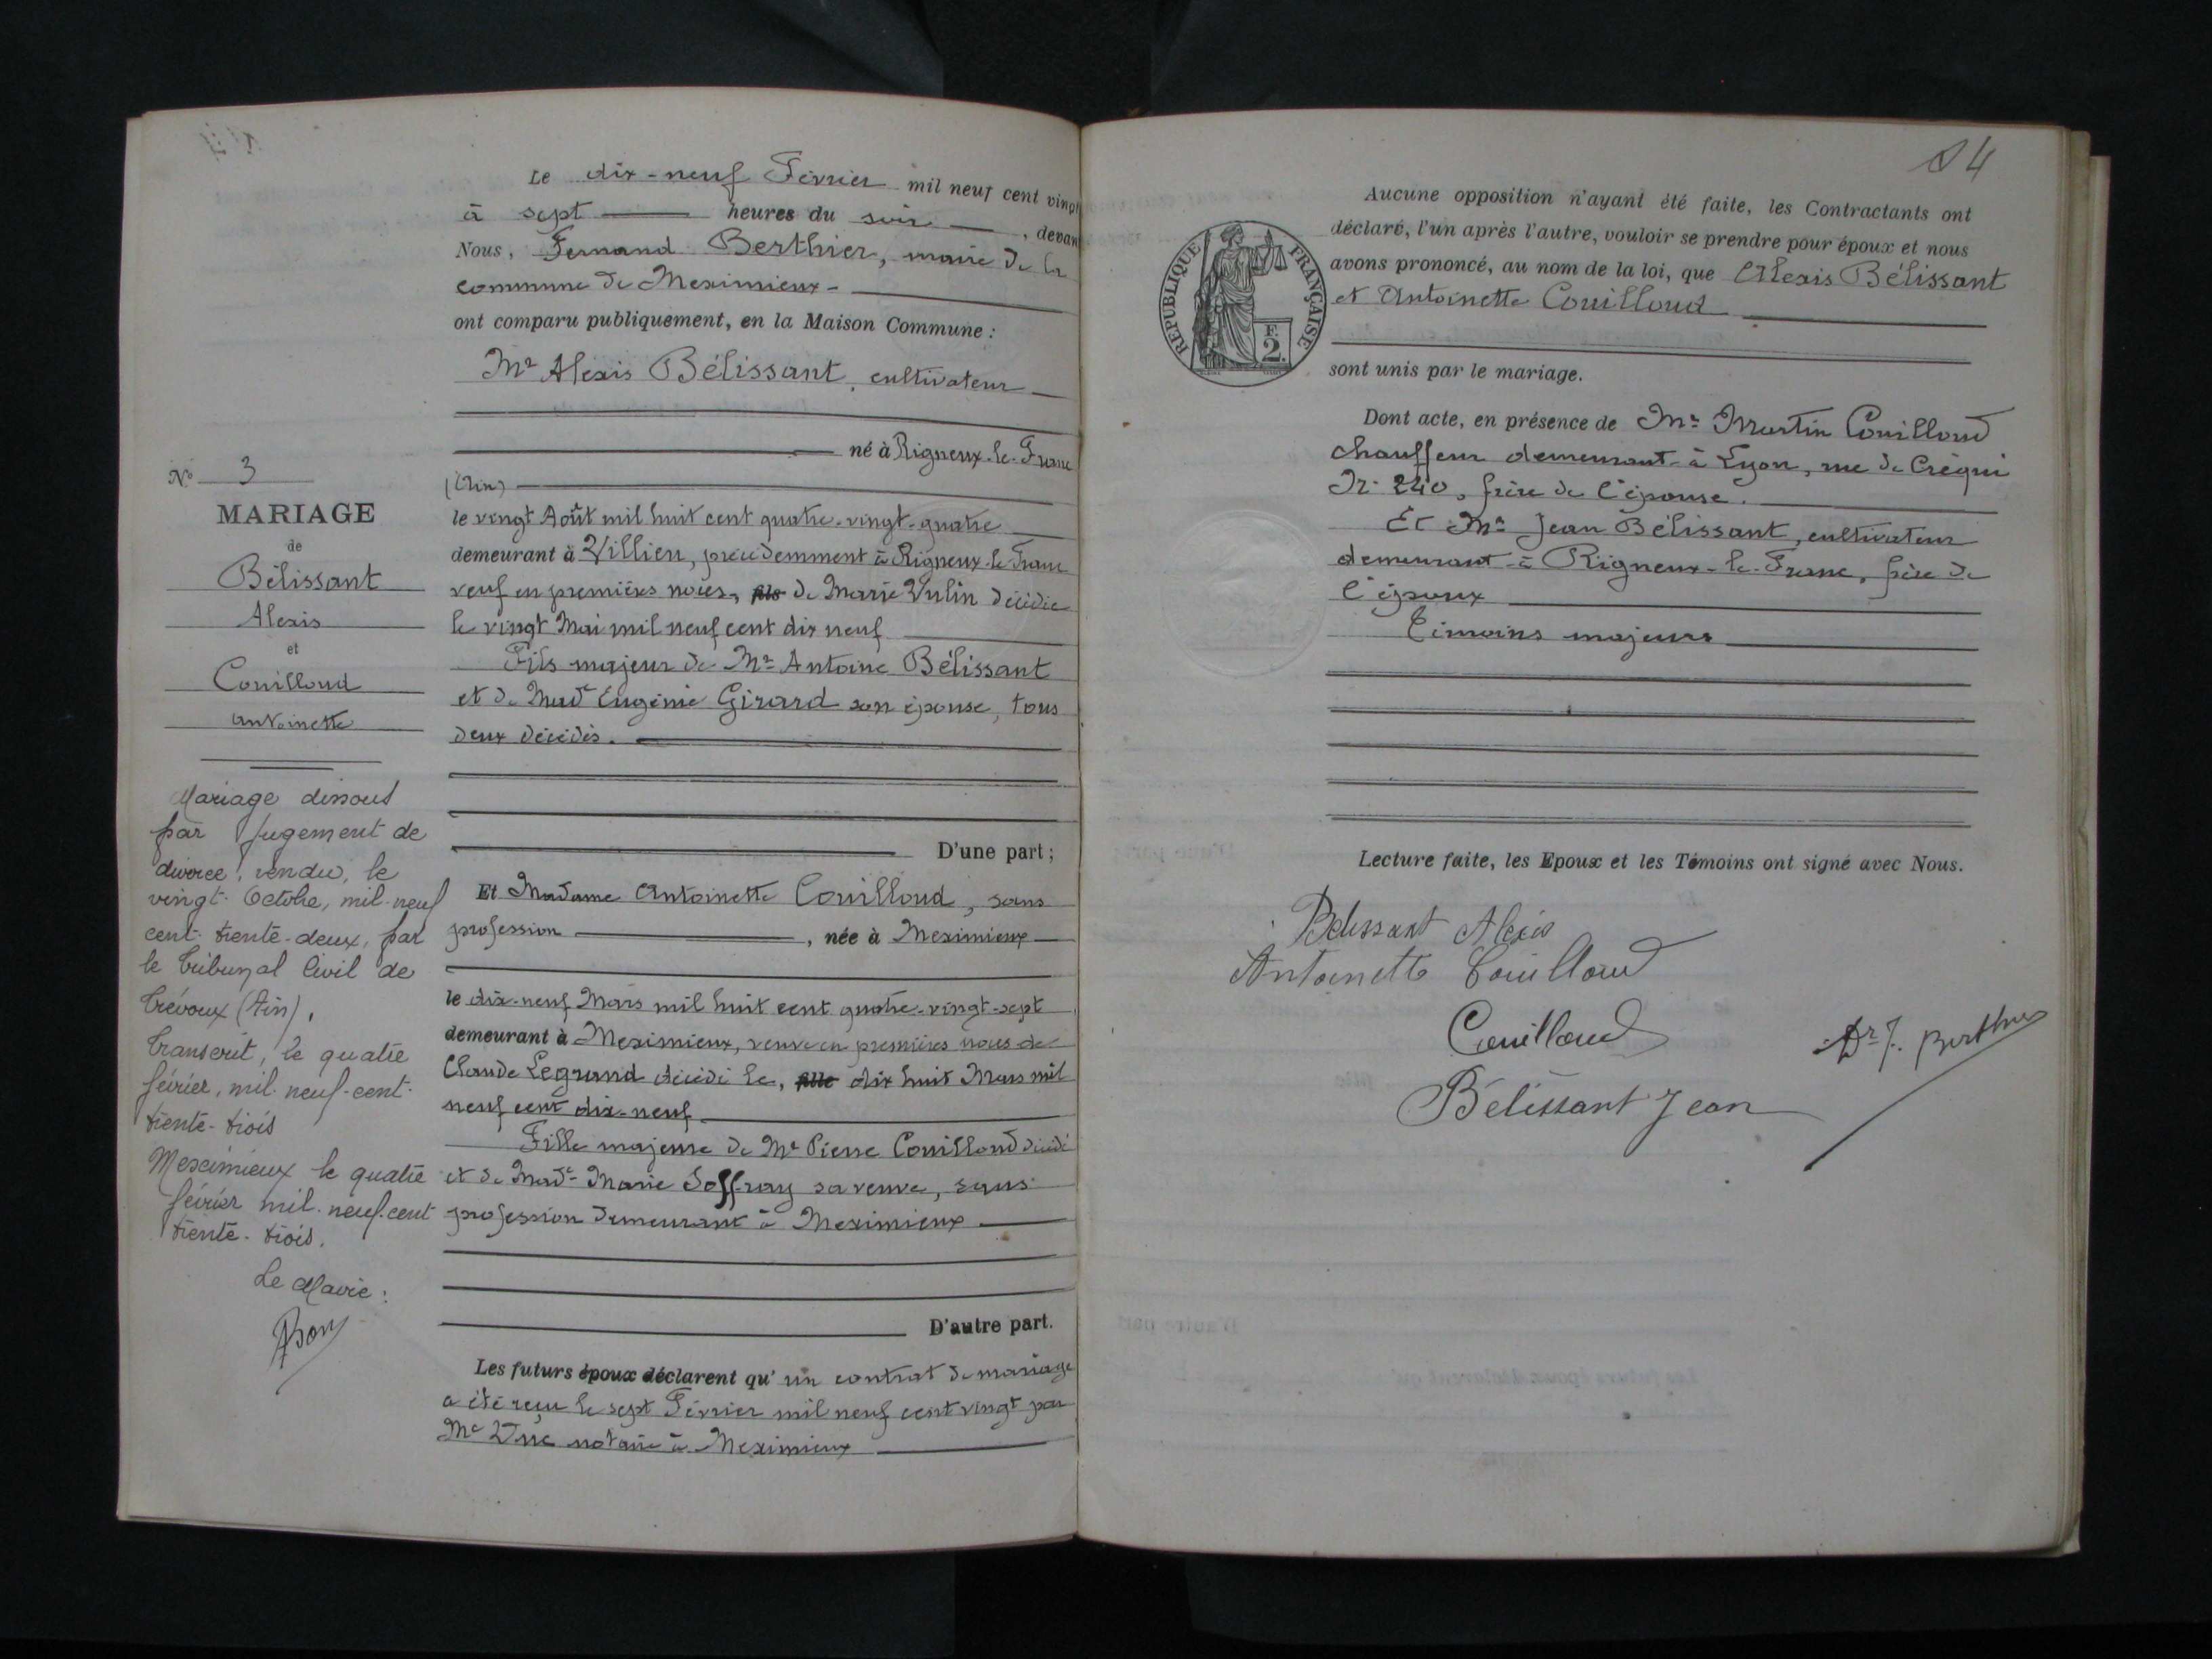 Le dix-neuf Février mil neuf cent vingt
à sept heures du soir, devant
Nous, Fernand Berthier, maire de la
commune de Meximieux
ont comparu publiquement, en la Maison Commune :
Mr Alexis Bélissant, cultivateur
né à Rigneux-le-Franc
(Ain)
le vingt Août mil huit cent quatre-vingt-quatre
demeurant à Villieu, précédemment à Rigneux-le-Franc
veuf en premières noces, fils de Marie Vulin décédée
le vingt Mai mil neuf cent dix neuf
Fils majeur de Mr Antoine Bélissant
et de Made Eugénie Girard son épouse, tous
deux décédés.
D'une part ;
Et Madame Antoinette Couilloud, sans
profession, née à Meximieux
le dix-neuf Mars mil huit cent quatre-vingt-sept
demeurant à Meximieux, veuve en premières noces de
Claude Legrand décédé le, fille dix huit Mars mil
neuf cent dix-neuf
Fille majeure de Mr Pierre Couilloud décédé
et de Made Marie Soffray sa veuve, sans
profession demeurant à Meximieux
D'autre part.
Les futurs époux déclarent qu'un contrat de mariage
a été reçu le sept Février mil neuf cent vingt par
Me notaire à Meximieux
No 3
MARIAGE
de
Bélissant
Alexis
et
Couilloud
Antoinette
Mariage dissous
par jugement de
divorce, rendu, le
vingt Octobre, mil-neuf
cent-trente-deux, par
le Tribunal Civil de
Trévoux (Ain).
Transcrit, le quatre
février, mil-neuf-cent-
trente-trois
Meximieux le quatre
février mil-neuf-cent
trente-trois.
Le Maire :
84
REPUBLIQUE FRANÇAISE
F.
2.
Aucune opposition n'ayant été faite, les Contractants ont
déclaré, l'un après l'autre, vouloir se prendre pour époux et nous
avons prononcé, au nom de la loi, que Alexis Bélissant
et Antoinette Couilloud
sont unis par le mariage.
Dont acte, en présence de Mr Martin Couilloud
chauffeur demeurant à Lyon, rue de Créqui
No 240, frère de l'épouse.
Et Mr Jean Bélissant, cultivateur
demeurant à Rigneux-le-Franc, frère de
l'époux
Témoins majeurs
Lecture faite, les Epoux et les Témoins ont signé avec Nous.
Belissant Alexis
Antoinette Couilloud
Couilloud
Dr F. Berthier
Bélissant Jean